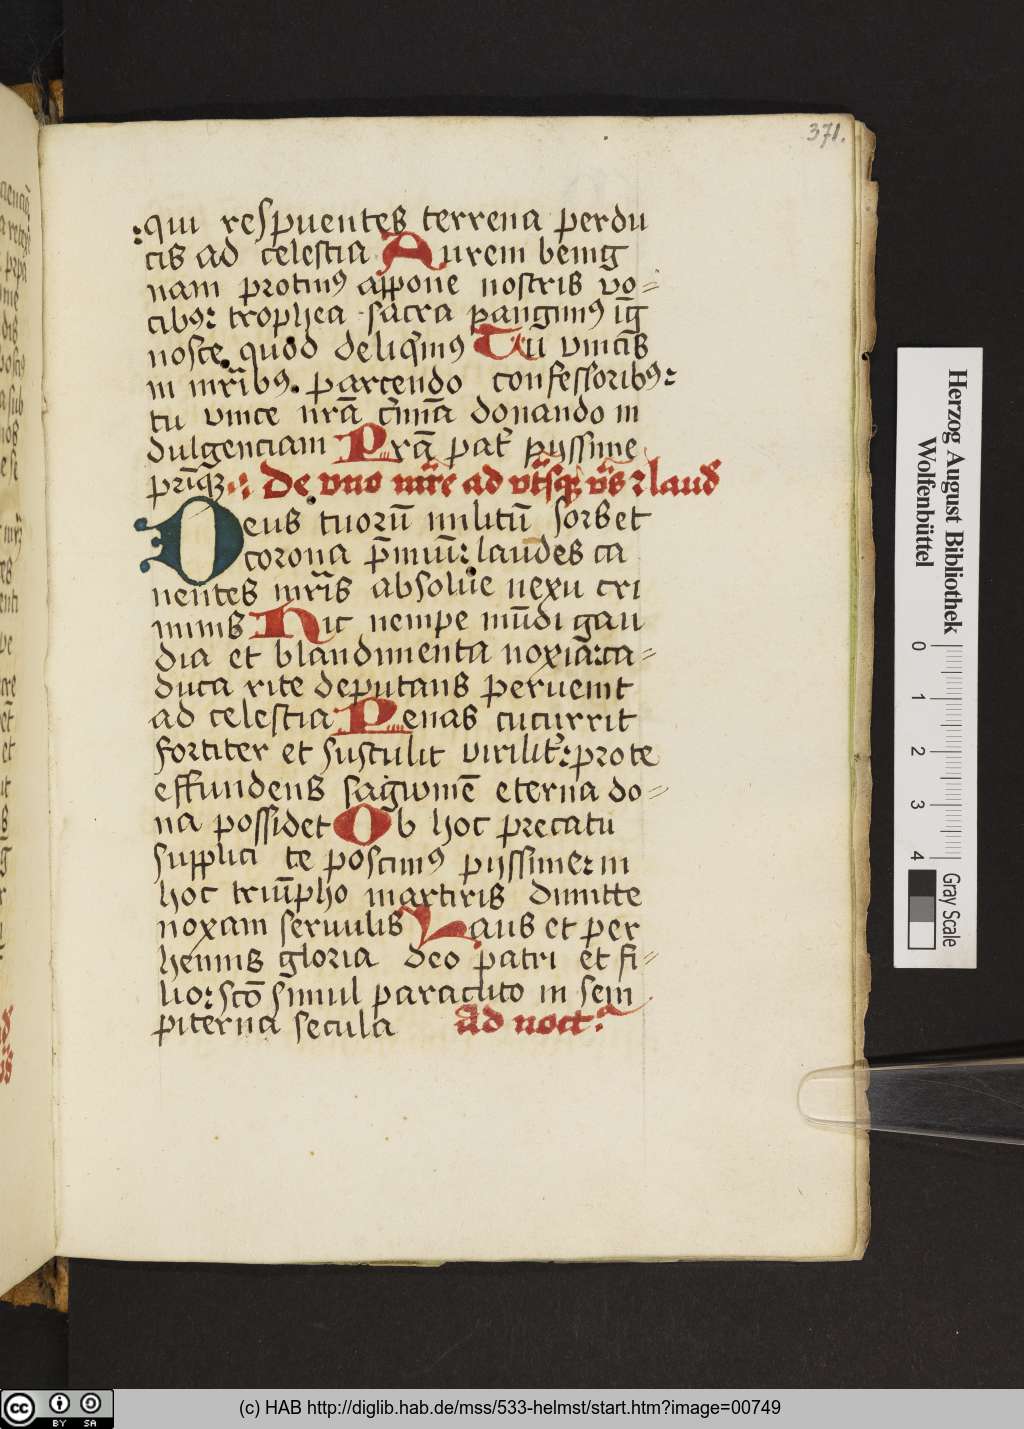 371.
qui respuentes terrena perdu
cis ad celestia Aurem benig
nam protinꝰ appone nostris vo⸗
cibꝰ: trophea sacra pangimꝰ ig̅
nosce quod deliq̅mꝰ Tu̅ vincis
in mr̅ibꝰ. parcendo confessoribꝰ:
tu vince nra̅ c̅mi̅a donando in
dulgenciam Pra̅ pat̉ pijssime
pri̅qꝫ: De vno mr̅e ad vt̅sqꝫ vp̅s ⁊ laud̉
Deus tuoru̅ militu̅ sors et
corona p̅miu̅: laudes ca
nentes mr̅is absolue nexu cri
minis Hic nempe mu̅di gau
dia et blandimenta noxia̅: ca⸗
duca rite deputans peruenit
ad celestia Penas cucurrit
fortiter et sustulit virilit̉: pro te
effundens sag̉wine̅ eterna do⸗
na possidet Ob hoc precatu
supplici te poscimꝰ pijssime: in
hoc triu̅pho martiris dimitte
noxam seruulis Laus et per
hennis gloria deo patri et fi⸗
lio: sc̅o simul paraclito in sem
piterna secula ad noct̉.
Herzog August Bibliothek
Wolfenbüttel
0 1 2 3 4
Gray Scale
cc BY SA
(c) HAB http://diglib.hab.de/mss/533-helmst/start.htm?image=00749